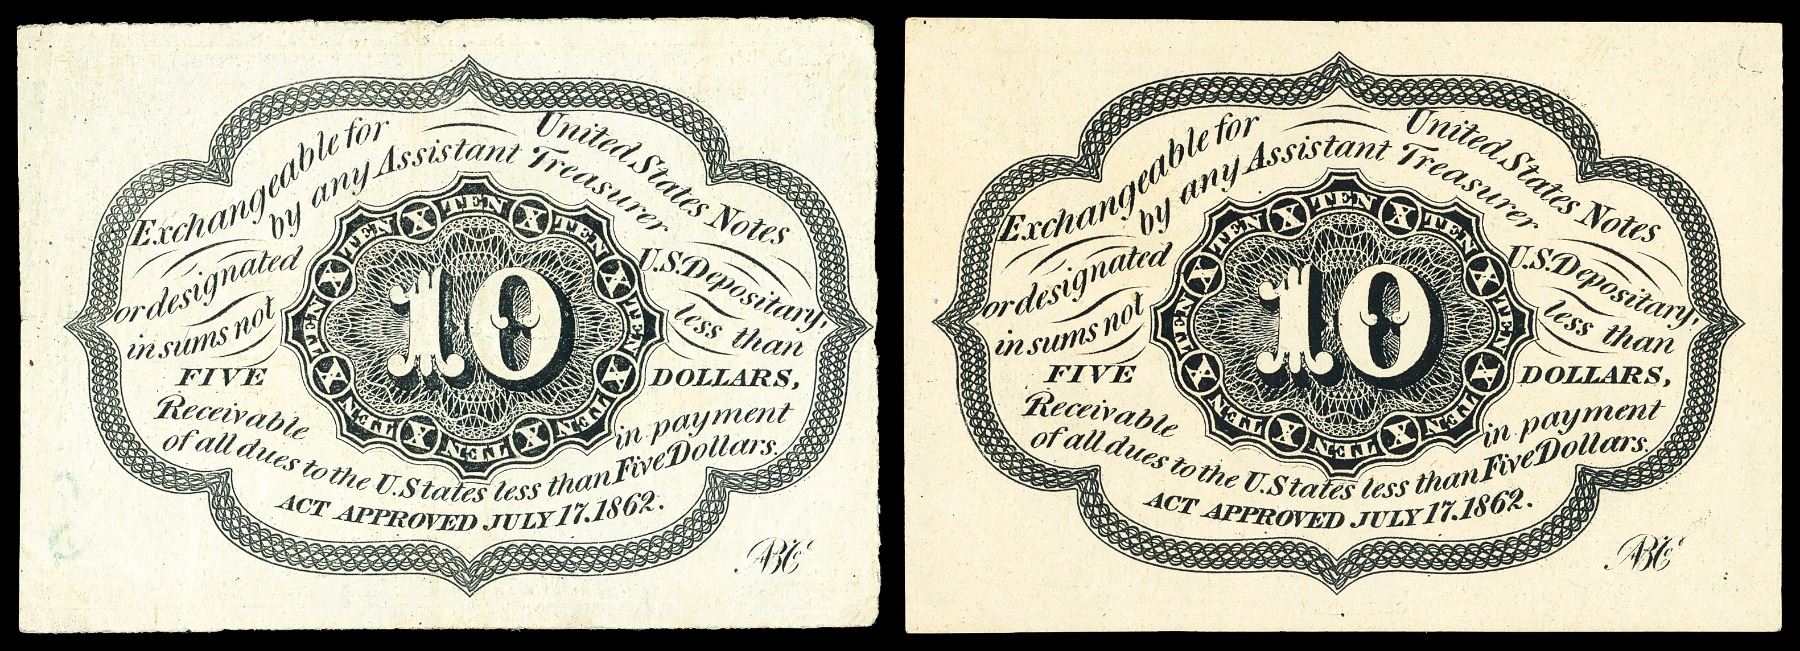 Exchangeable for United States Notes
by any Assistant Treasurer
or designated U.S. Depositary,
in sums not less than
FIVE DOLLARS,
Receivable in payment
of all dues to the U. States less than Five Dollars.
ACT APPROVED JULY 17. 1862.
TEN X TEN X TEN X TEN X TEN X TEN X TEN X TEN X
10
ABCo
Exchangeable for United States Notes
by any Assistant Treasurer
or designated U.S. Depositary,
in sums not less than
FIVE DOLLARS,
Receivable in payment
of all dues to the U. States less than Five Dollars.
ACT APPROVED JULY 17. 1862.
TEN X TEN X TEN X TEN X TEN X TEN X TEN X TEN X
10
ABCo